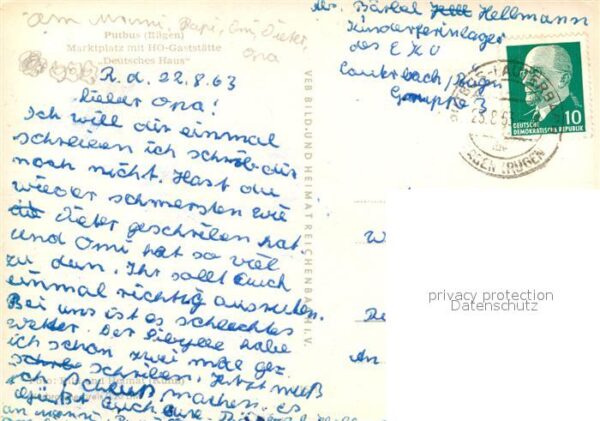 an Mammi, Papi, Omi, Dieter,
Opa
Putbus (Rügen)
Marktplatz mit HO-Gaststätte
„Deutsches Haus"
R. d. 22.8.63
Lieber Opa!
Ich will dir einmal
schreiben ich schrieb dir
noch nicht. Hast du
wieder schmersten wie
Dieter geschrieben hat
und Omi hat so viel
zu dun. Ihr sollt Euch
einmal richtig ausruhen.
Bei uns ist es schlechtes
wetter. Der habe
ich schon zwei mal ges.
schreiben. Jetzt muß
ich Schluß machen. es
grüßt Euch eure
an Mammi
Foto: Bild und Heimat
VEB BILD UND HEIMAT REICHENBACH I. V.
Abs. Bärbel Hellmann
Kinderferienlager
des EKO
Lauterbach/Rügen
Gruppe 3
PUTBUS-LAUTERBACH
(RÜGEN)
DEUTSCHE
DEMOKRATISCHE REPUBLIK
10
privacy protection
Datenschutz